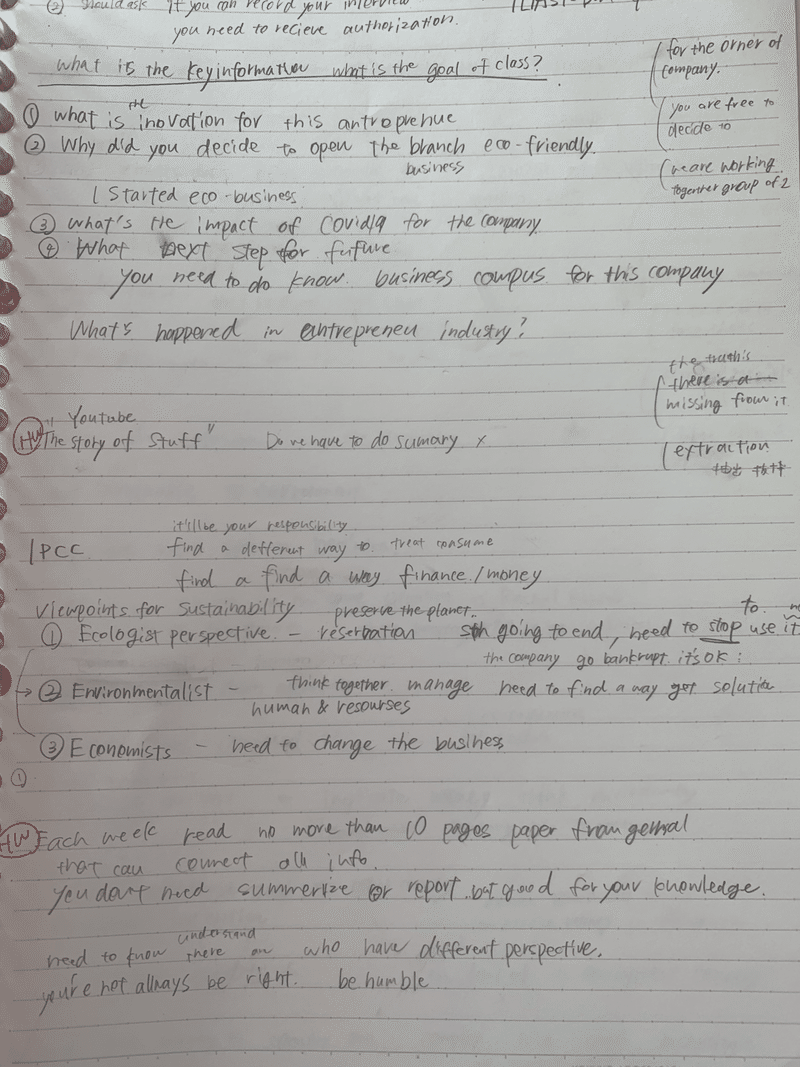 ② Should ask if you can record your interview
you need to recieve authorization.
what is the key information what is the goal of class?
(for the orner of
company.
① what is the inovation for this antroprenue
(you are free to
decide to
② Why did you decide to open the branch eco-friendly.
business
(we are working
together group of 2
I Started eco-business
③ what's the impact of Covid19 for the company
④ What next step for future
you need to do know business compus for this company
What's happened in entrepreneu industry?
the truth is
(there is a
missing from it
HW "Youtube
The story of Stuff" Do we have to do sumary x
(extraction
抽出
it'll be your responsibility
IPCC find a defferent way to treat consume
find a find a way finance/money
Viewpoints for Sustainability preserve the planet.
① Ecologist perspective - reserbation sth going to end, need to stop use it
to
the company go bankrupt it's OK:
→ ② Environmentalist - think together manage need to find a way get solution
human & resourses
③ Economists - need to change the business
①
HW Each week read no more than 10 pages paper from gernal
that can connect all info
you don't need summerize or report but good for your knowledge.
understand
need to know there are who have different perspective.
you're not allways be right. be humble